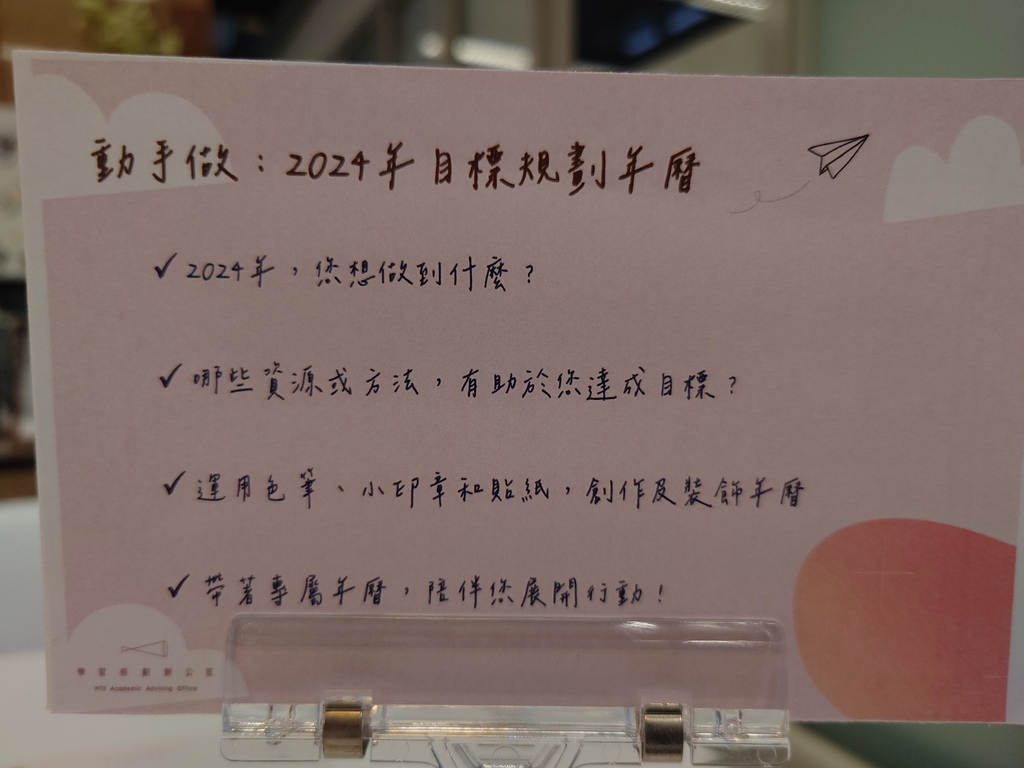 動手做：2024年目標規劃年曆
✓ 2024年，您想做到什麼？
✓ 哪些資源或方法，有助於您達成目標？
✓ 運用色筆、小印章和貼紙，創作及裝飾年曆
✓ 帶著專屬年曆，陪伴您展開行動！
學習規劃辦公室
NTU Academic Advising Office